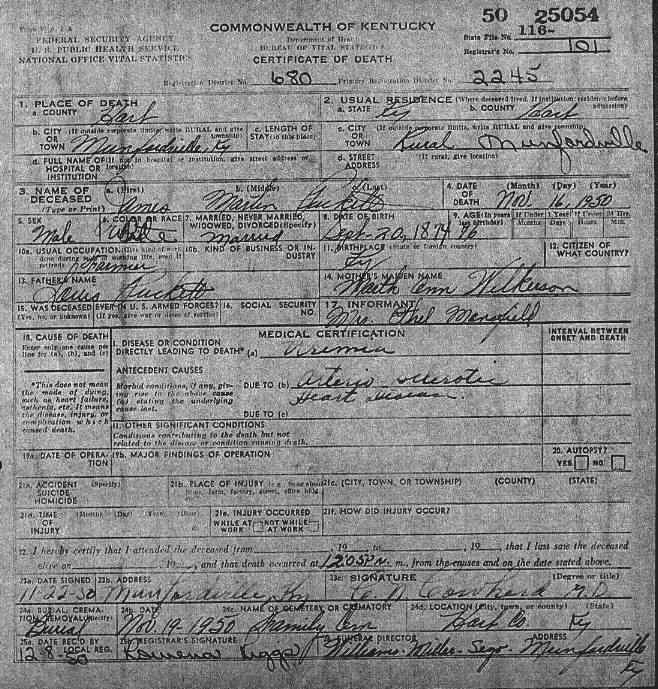 50 25054
FEDERAL SECURITY AGENCY
U. S. PUBLIC HEALTH SERVICE
NATIONAL OFFICE VITAL STATISTICS
COMMONWEALTH OF KENTUCKY
Department of Health
BUREAU OF VITAL STATISTICS
CERTIFICATE OF DEATH
State File No. 116-
Registrar's No. 101
Registration District No. 680 Primary Registration District No. 2245
1. PLACE OF DEATH
a. COUNTY Hart
2. USUAL RESIDENCE (Where deceased lived. If institution: residence before admission)
a. STATE Ky b. COUNTY Hart
b. CITY OR TOWN (If outside corporate limits, write RURAL and give Munfordville, Ky
c. LENGTH OF STAY (in this place)
c. CITY OR TOWN (If outside corporate limits, write RURAL and give township) Rural Munfordville
d. FULL NAME OF HOSPITAL OR INSTITUTION (If not in hospital or institution, give street address or location)
d. STREET ADDRESS (If rural, give location)
3. NAME OF DECEASED (Type or Print)
a. (First) James b. (Middle) Martin c. (Last) Puckett
4. DATE OF DEATH (Month) (Day) (Year) Nov. 16, 1950
5. SEX Male
6. COLOR OR RACE White
7. MARRIED, NEVER MARRIED, WIDOWED, DIVORCED (Specify) Married
8. DATE OF BIRTH Sept. 20, 1874
9. AGE (In years last birthday) 76 If Under 1 Year Months Days If Under 24 Hrs. Hours Min.
10a. USUAL OCCUPATION (Give kind of work done during most of working life, even if retired) Farmer
10b. KIND OF BUSINESS OR INDUSTRY
11. BIRTHPLACE (State or foreign country) Ky
12. CITIZEN OF WHAT COUNTRY?
13. FATHER'S NAME Louis Puckett
14. MOTHER'S MAIDEN NAME Ann Wilkerson
15. WAS DECEASED EVER IN U. S. ARMED FORCES? (Yes, no, or unknown) (If yes, give war or dates of service)
16. SOCIAL SECURITY NO.
17. INFORMANT Mrs. Ethel Mansfield
18. CAUSE OF DEATH
Enter only one cause per line for (a), (b), and (c)
MEDICAL CERTIFICATION
INTERVAL BETWEEN ONSET AND DEATH
I. DISEASE OR CONDITION DIRECTLY LEADING TO DEATH* (a) Uremia
*This does not mean the mode of dying, such as heart failure, asthenia, etc. It means the disease, injury, or complication which caused death.
ANTECEDENT CAUSES
Morbid conditions, if any, giving rise to the above cause (a) stating the underlying cause last.
DUE TO (b) Arterio sclerotic
Heart disease.
DUE TO (c)
II. OTHER SIGNIFICANT CONDITIONS
Conditions contributing to the death but not related to the disease or condition causing death.
19a. DATE OF OPERATION
19b. MAJOR FINDINGS OF OPERATION
20. AUTOPSY? YES NO
21a. ACCIDENT SUICIDE HOMICIDE (Specify)
21b. PLACE OF INJURY (e.g., in or about home, farm, factory, street, office bldg.,
21c. (CITY, TOWN, OR TOWNSHIP) (COUNTY) (STATE)
21d. TIME OF INJURY (Month) (Day) (Year) (Hour)
21e. INJURY OCCURRED WHILE AT WORK NOT WHILE AT WORK
21f. HOW DID INJURY OCCUR?
22. I hereby certify that I attended the deceased from 19 to 19 , that I last saw the deceased
alive on 19 , and that death occurred at 12:05 P.M. m., from the causes and on the date stated above.
23a. DATE SIGNED 11-22-50
23b. ADDRESS Munfordville, Ky
23c. SIGNATURE (Degree or title) Cowherd M.D.
24a. BURIAL, CREMATION, REMOVAL (Specify) Burial
24b. DATE Nov. 19-1950
24c. NAME OF CEMETERY OR CREMATORY Family Cem
24d. LOCATION (City, town, or county) (State) Hart Co. Ky
25a. DATE REC'D BY LOCAL REG. 12-8-50
25b. REGISTRAR'S SIGNATURE
FUNERAL DIRECTOR ADDRESS
Williams-Miller-Sego- Munfordville
Ky